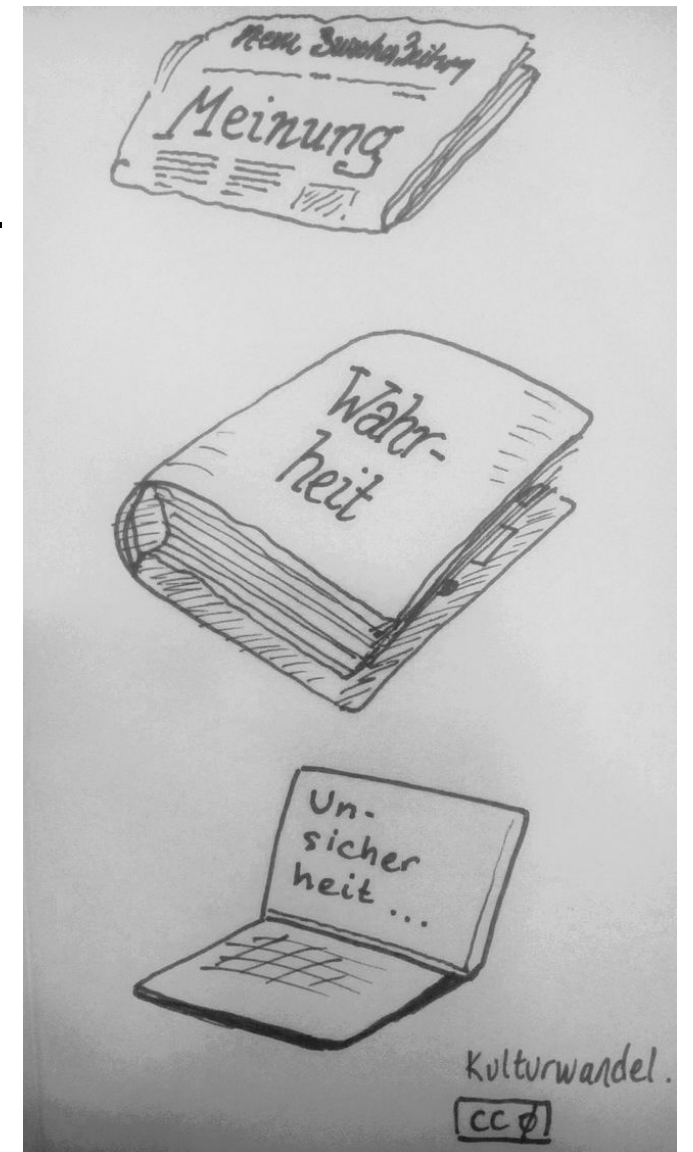 Zeitung
Meinung
Wahr-
heit
Un-
sicher
heit ...
Kulturwandel.
CC0